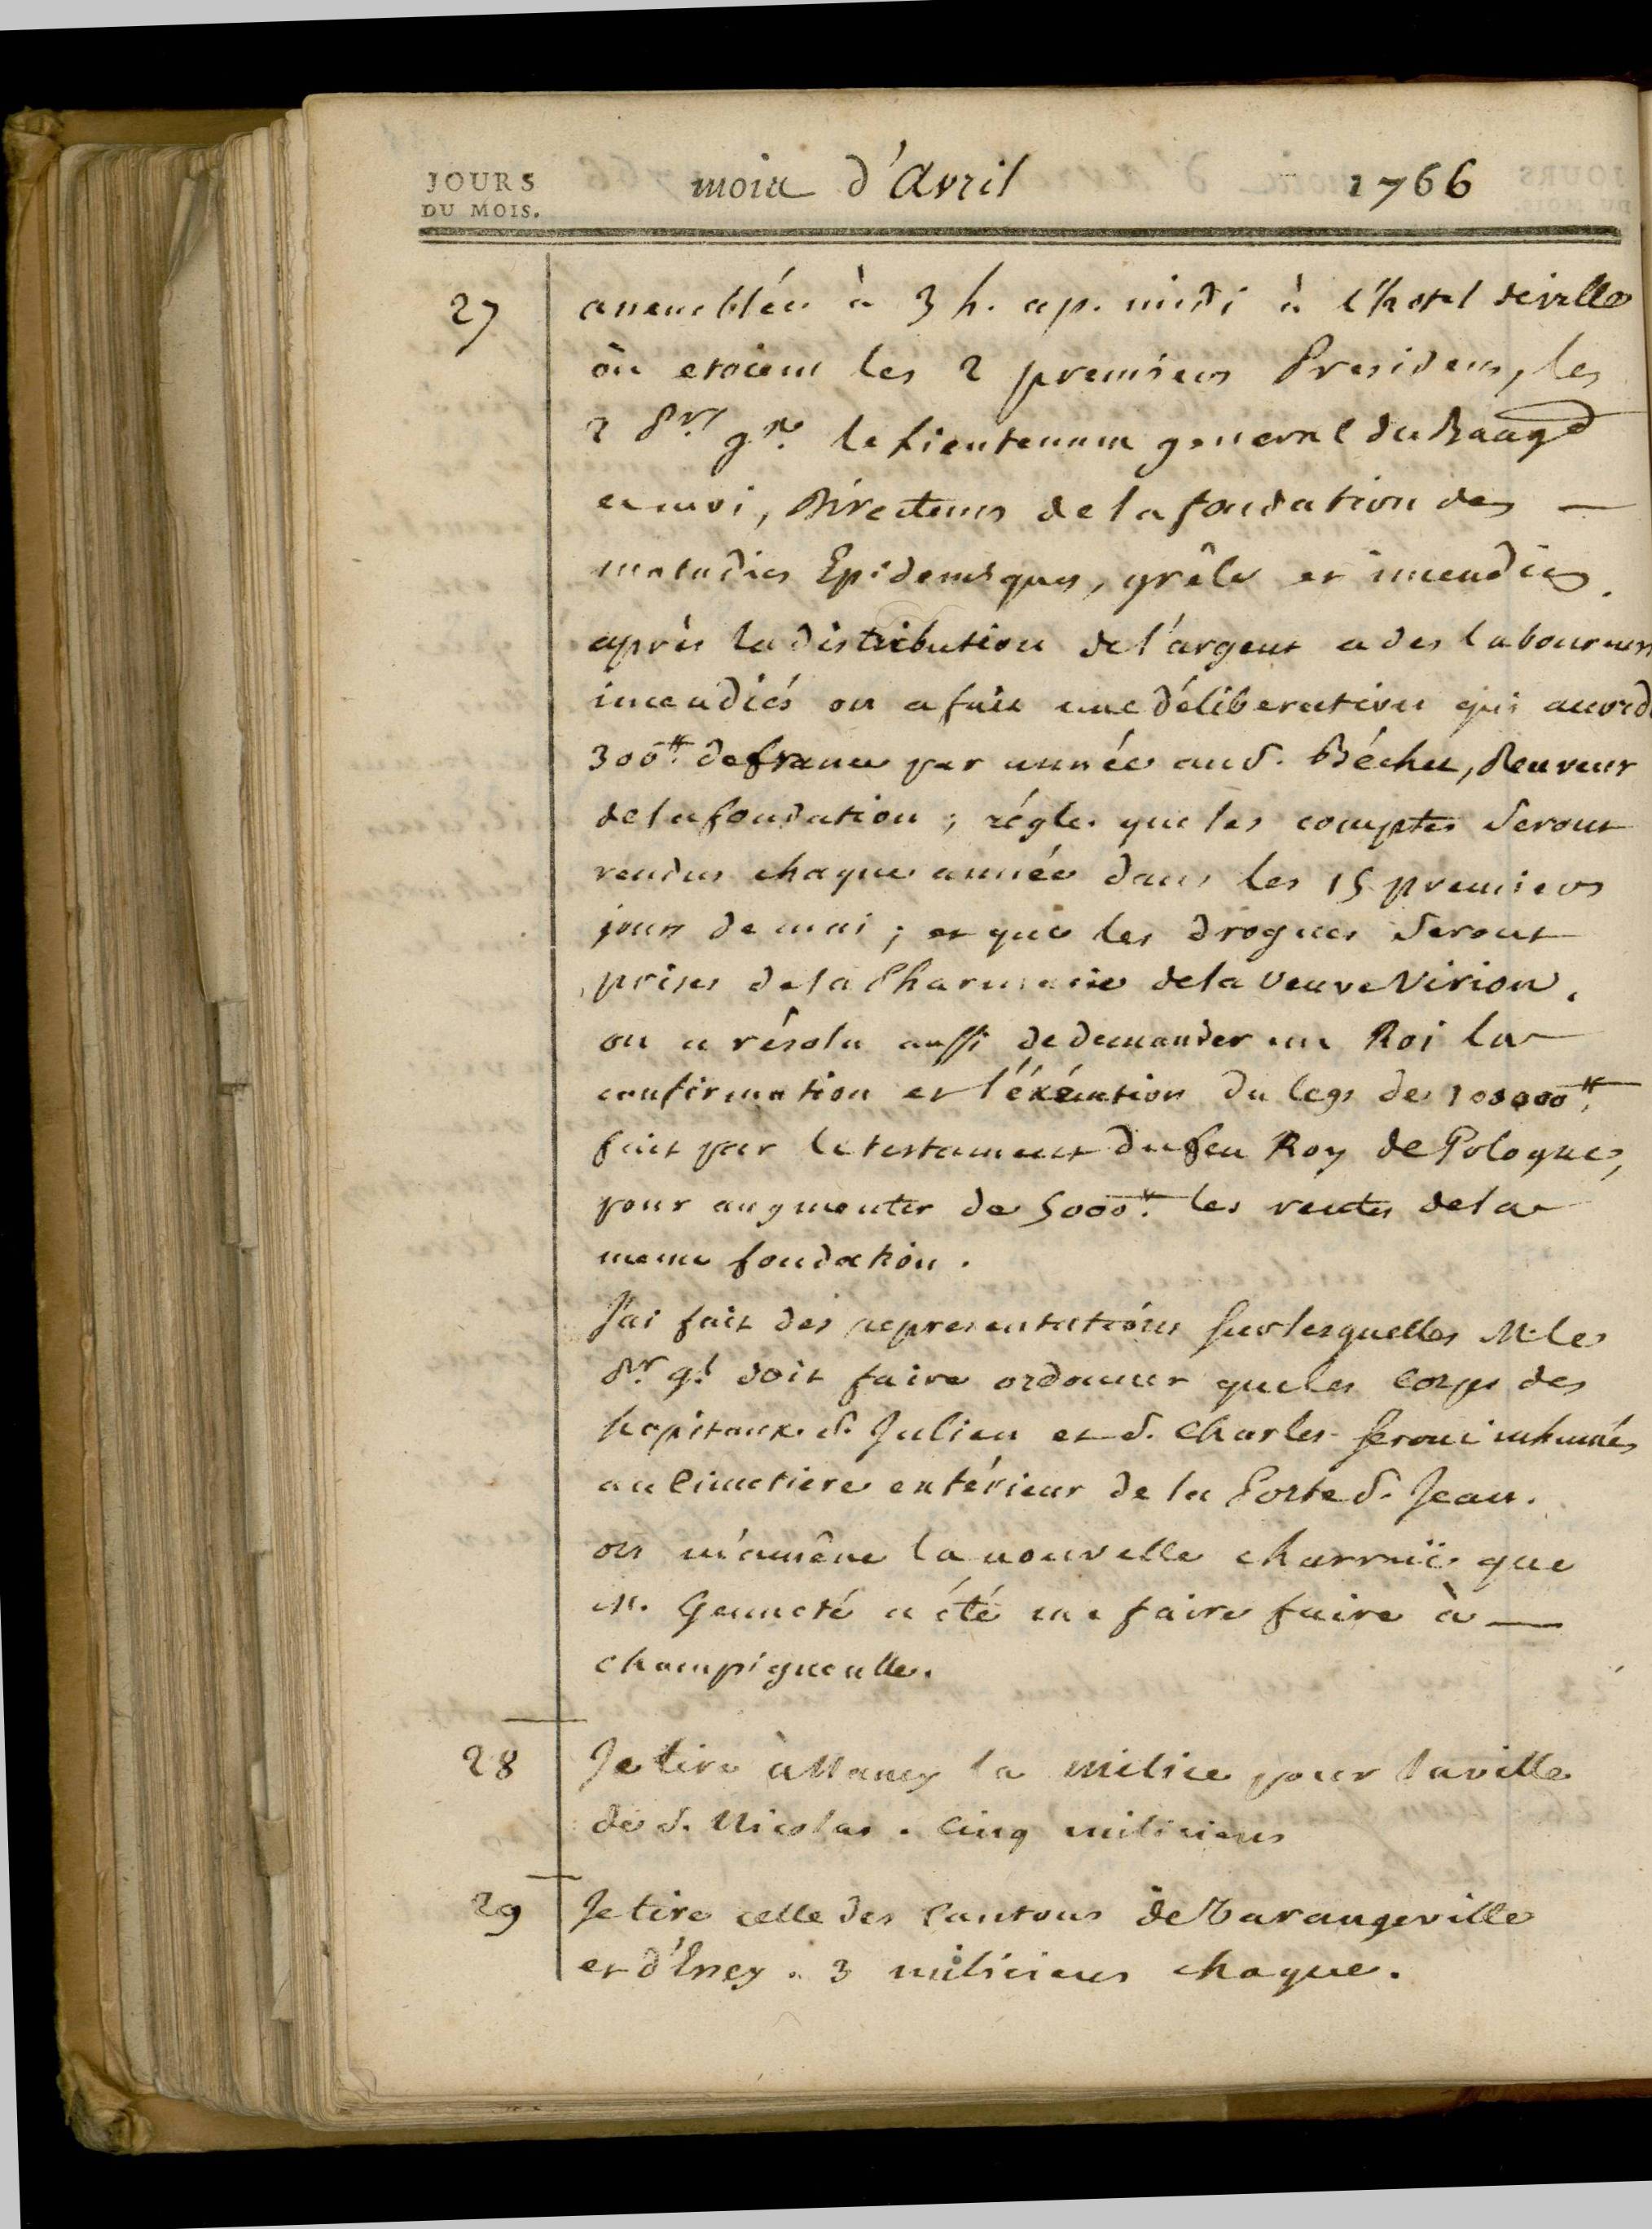 JOURS
DU MOIS.
mois d'Avril 1766
27
assemblée à 3 h. ap. midi à l'hotel de ville
où etoient les 2 premiers Presidens, les
2 Prs. grx. le Lieutenant general du Baage
et moi, Directeurs de la fondation des —
maladies Epidemiques, grêle et incendies.
après la distribution de l'argent a des laboureurs
incendiés on a fait une déliberation qui accorde
300# de france par année au S. Béchet, Receveur
de la fondation ; régle que les comptes seront
rendus chaque année dans les 15 premiers
jours de mai ; et que les drogues seront
prises de la Pharmacie de la veuve Virion.
on a résolu aussi de demander au Roi la
confirmation et l'éxécution du legs de 100000#.
fait par le testament du feu Roy de Pologne,
pour augmenter de 5000#. les rentes de la
meme fondation.
J'ai fait des representations sur lesquelles M. le
Pr. gl. doit faire ordonner que les corps des
hopitaux S. Julien et S. Charles seront inhumés
au Cimetiere extérieur de la Porte S. Jean.
on m'amêne la nouvelle charruë que
M. Genneté a été me faire faire à —
champigneulle.
28
Je tire à Nancy la milice pour la ville
de S. Nicolas. Cinq miliciens
29
Je tire celle des Cantons de Varangeville
et d'Essey. 3 miliciens chaque.